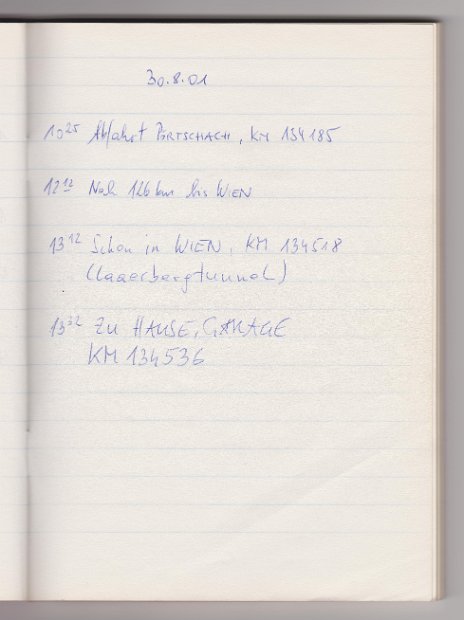 30.8.01
10²⁵ Abfahrt PÖRTSCHACH, KM 134185
12¹² Noch 126 km bis WIEN
13¹² Schon in WIEN, KM 134518
(Laaerbergtunnel)
13³² ZU HAUSE, GARAGE
KM 134536